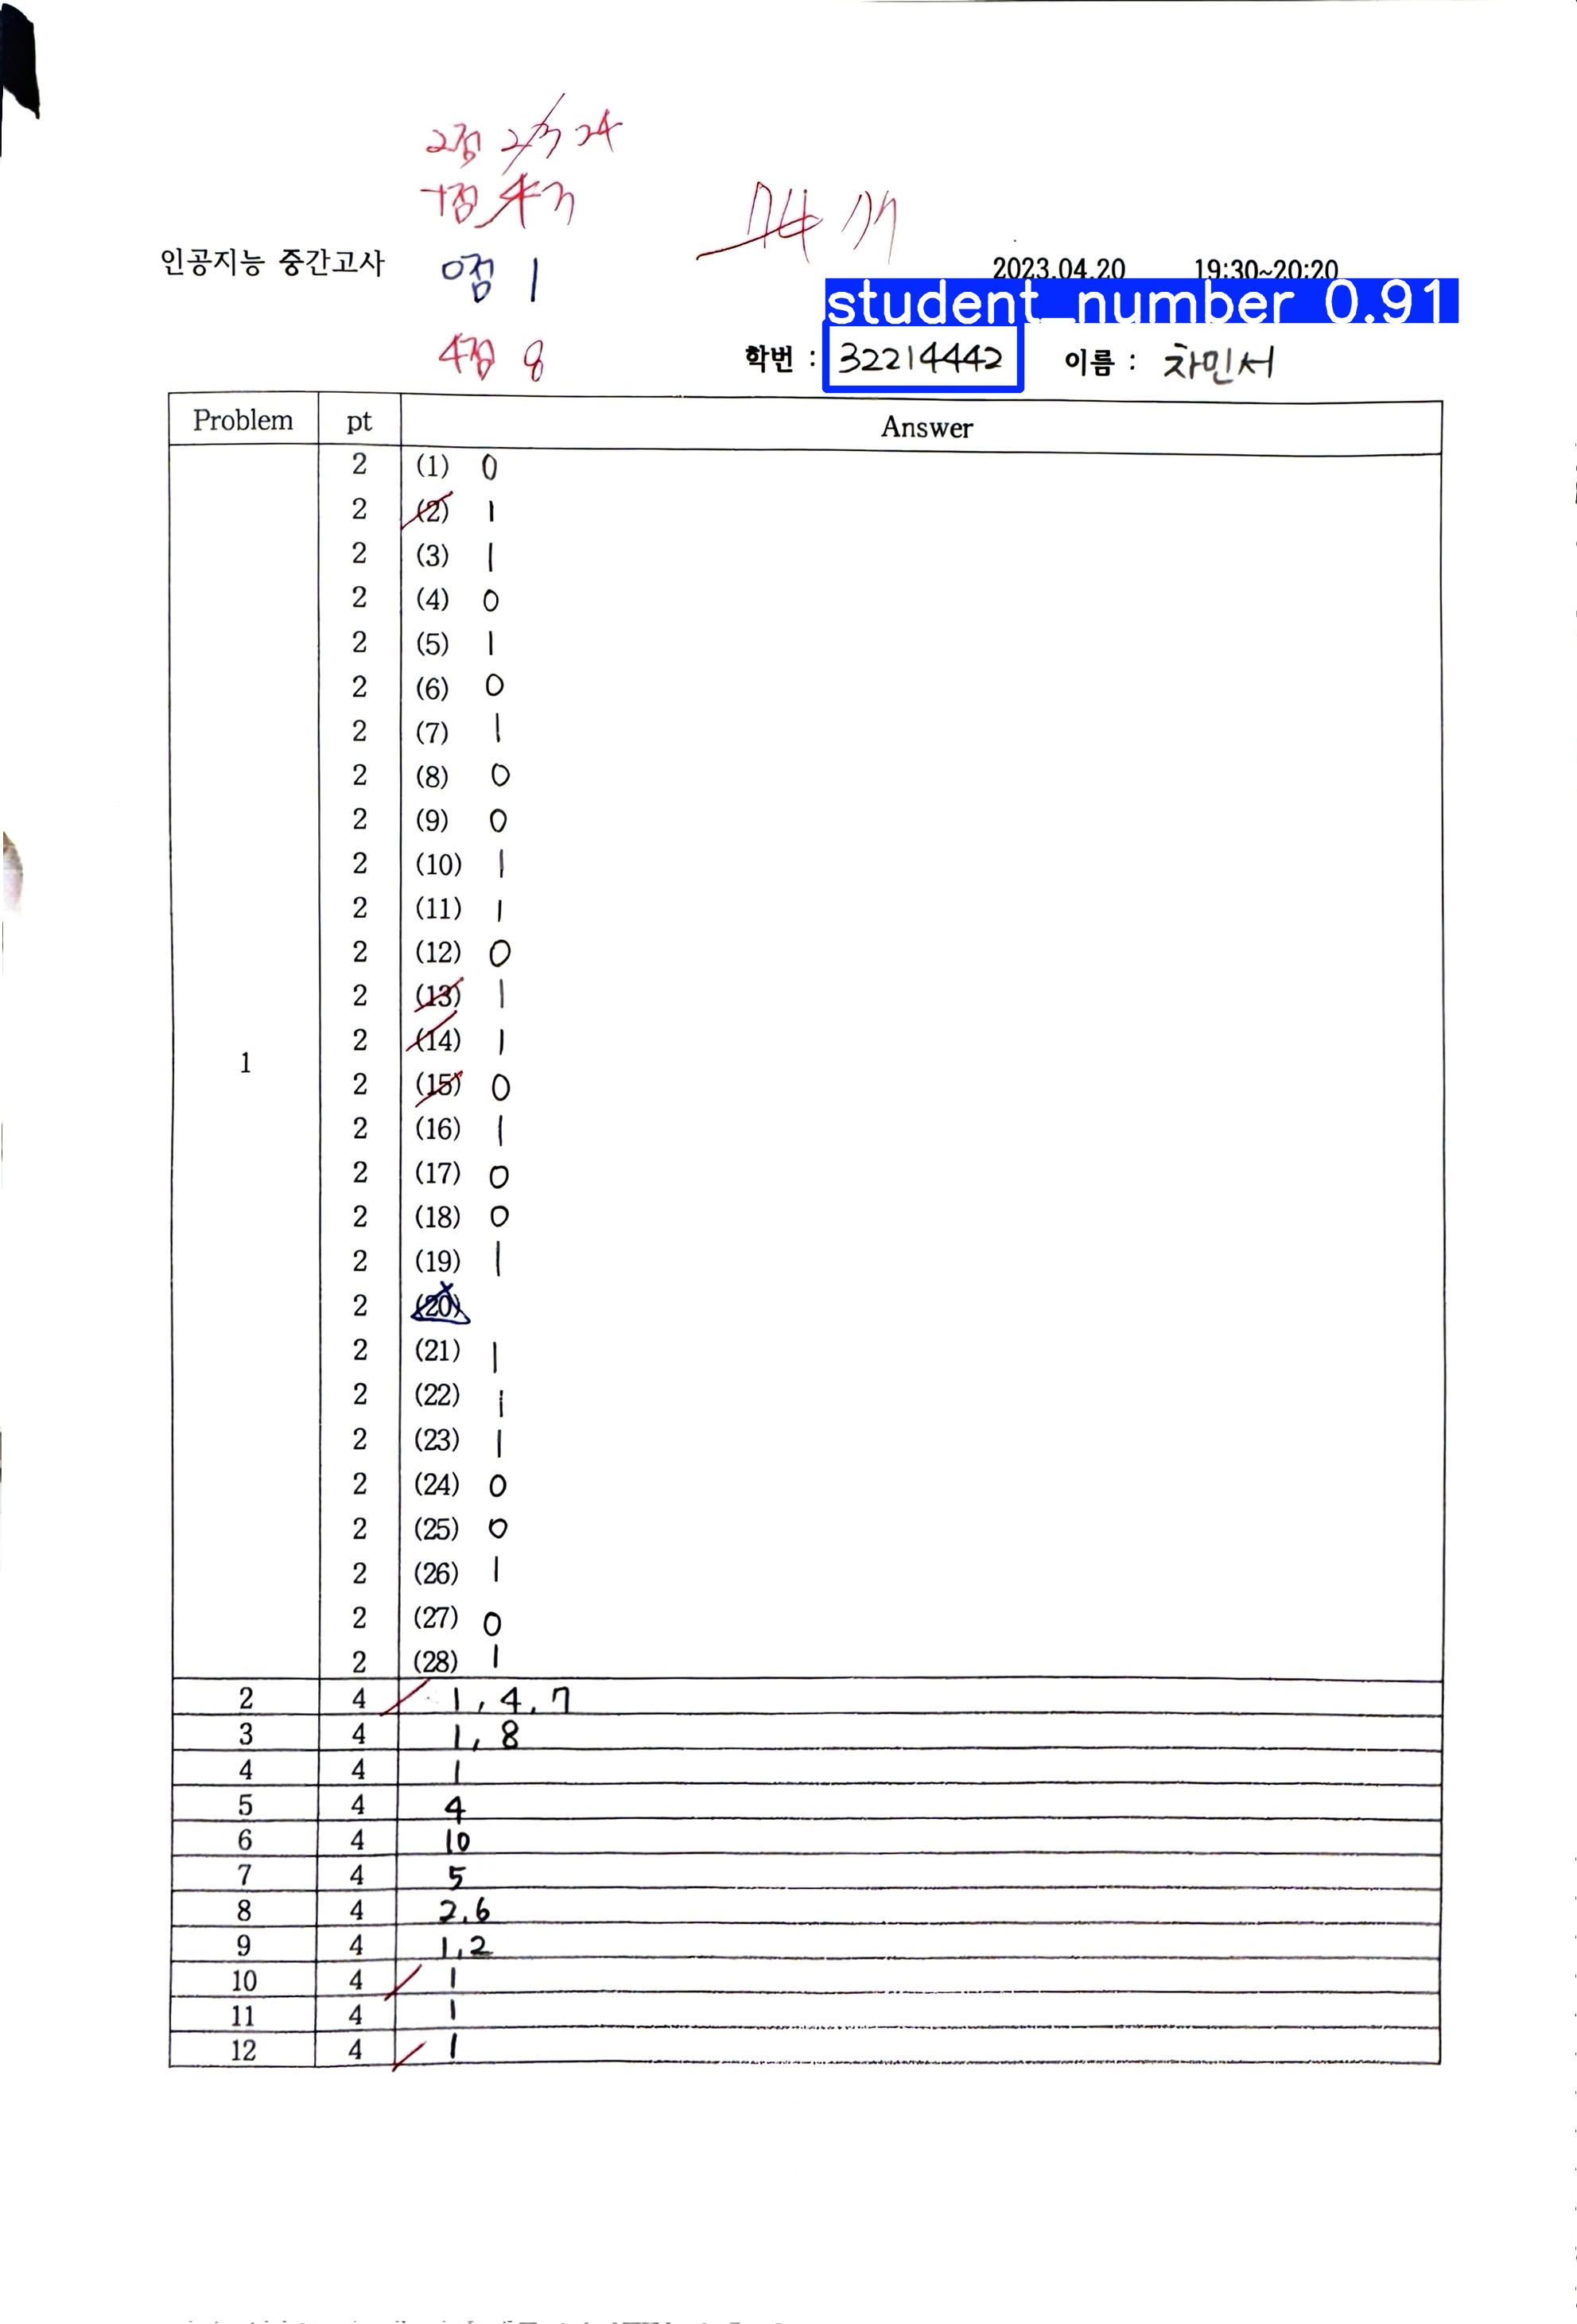 2점 23 24
-1점 4 3
74 77
인공지능 중간고사
0점 1
2023.04.20 19:30~20:20
student_number 0.91
4점 8
학번 : 32214442 이름 : 차민서
Problem pt Answer
1
2 (1) 0
2 (2) 1
2 (3) 1
2 (4) 0
2 (5) 1
2 (6) 0
2 (7) 1
2 (8) 0
2 (9) 0
2 (10) 1
2 (11) 1
2 (12) 0
2 (13) 1
2 (14) 1
2 (15) 0
2 (16) 1
2 (17) 0
2 (18) 0
2 (19) 1
2 (20)
2 (21) 1
2 (22) 1
2 (23) 1
2 (24) 0
2 (25) 0
2 (26) 1
2 (27) 0
2 (28) 1
2 4 1, 4, 7
3 4 1, 8
4 4 1
5 4 4
6 4 10
7 4 5
8 4 2,6
9 4 1,2
10 4 1
11 4 1
12 4 1